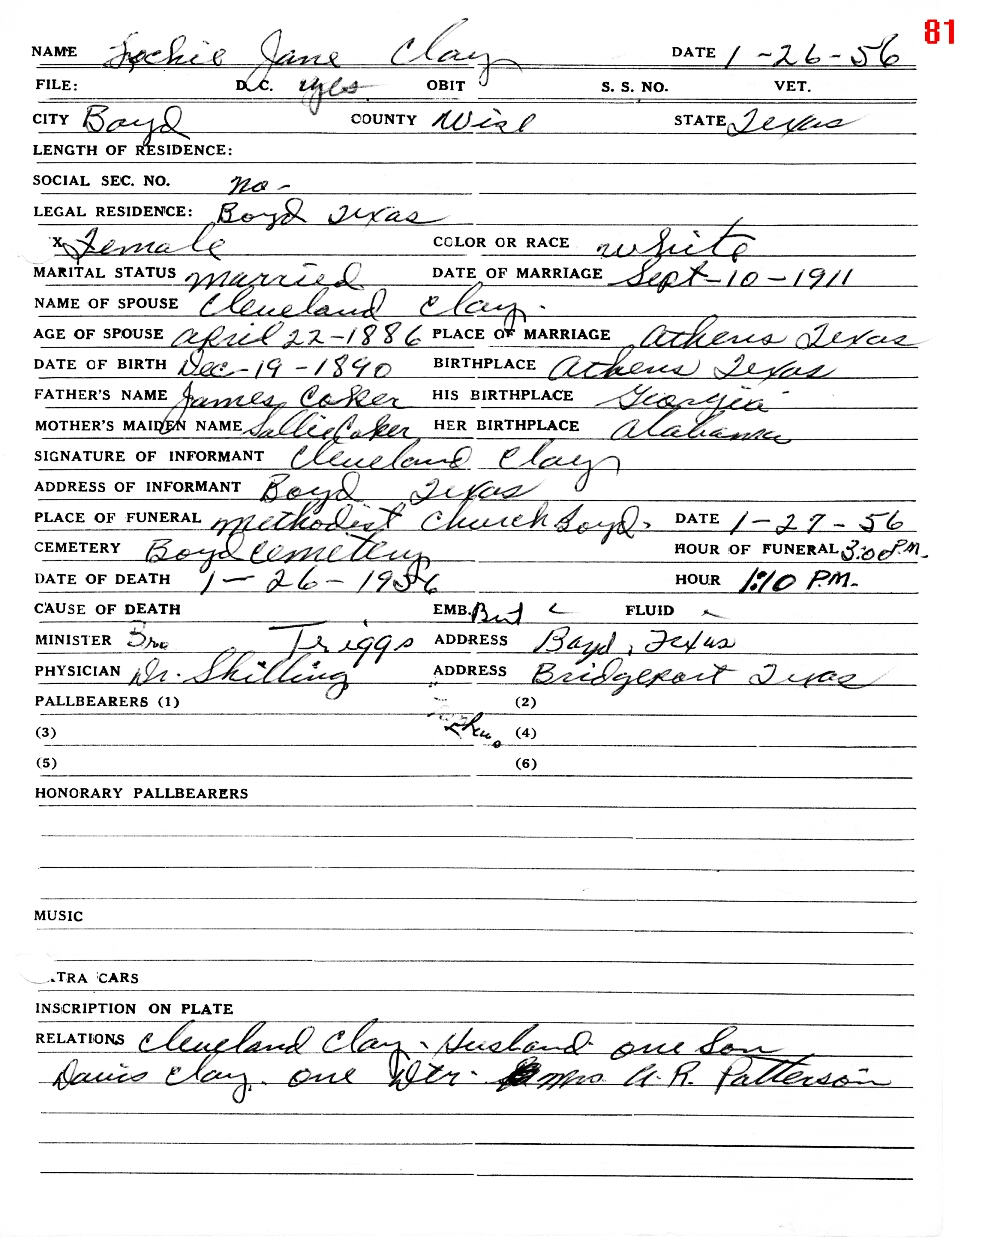 81
NAME Jane Clay DATE 1-26-56
FILE: D.C. yes OBIT S. S. NO. VET.
CITY Boyd COUNTY Wise STATE Texas
LENGTH OF RESIDENCE:
SOCIAL SEC. NO. no -
LEGAL RESIDENCE: Boyd Texas
X Female COLOR OR RACE white
MARITAL STATUS married DATE OF MARRIAGE Sept-10-1911
NAME OF SPOUSE Cleveland Clay.
AGE OF SPOUSE April 22-1886 PLACE OF MARRIAGE Athens Texas
DATE OF BIRTH Dec-19-1890 BIRTHPLACE Athens Texas
FATHER'S NAME James Coker HIS BIRTHPLACE Georgia
MOTHER'S MAIDEN NAME Sallie Coker HER BIRTHPLACE Alabama
SIGNATURE OF INFORMANT Cleveland Clay
ADDRESS OF INFORMANT Boyd Texas
PLACE OF FUNERAL Methodist Church Boyd. DATE 1-27-56
CEMETERY Boyd Cemetery HOUR OF FUNERAL 3:00 P.M.
DATE OF DEATH 1-26-1956 HOUR 1:10 P.M.
CAUSE OF DEATH EMB. FLUID
MINISTER Bro Triggs ADDRESS Boyd, Texas
PHYSICIAN Dr. Shilling ADDRESS Bridgeport Texas
PALLBEARERS (1) (2)
(3) (4)
(5) (6)
HONORARY PALLBEARERS
MUSIC
TRA CARS
INSCRIPTION ON PLATE
RELATIONS Cleveland Clay - Husband one Son
Davis Clay. one Dtr. Mrs. A. R. Patterson